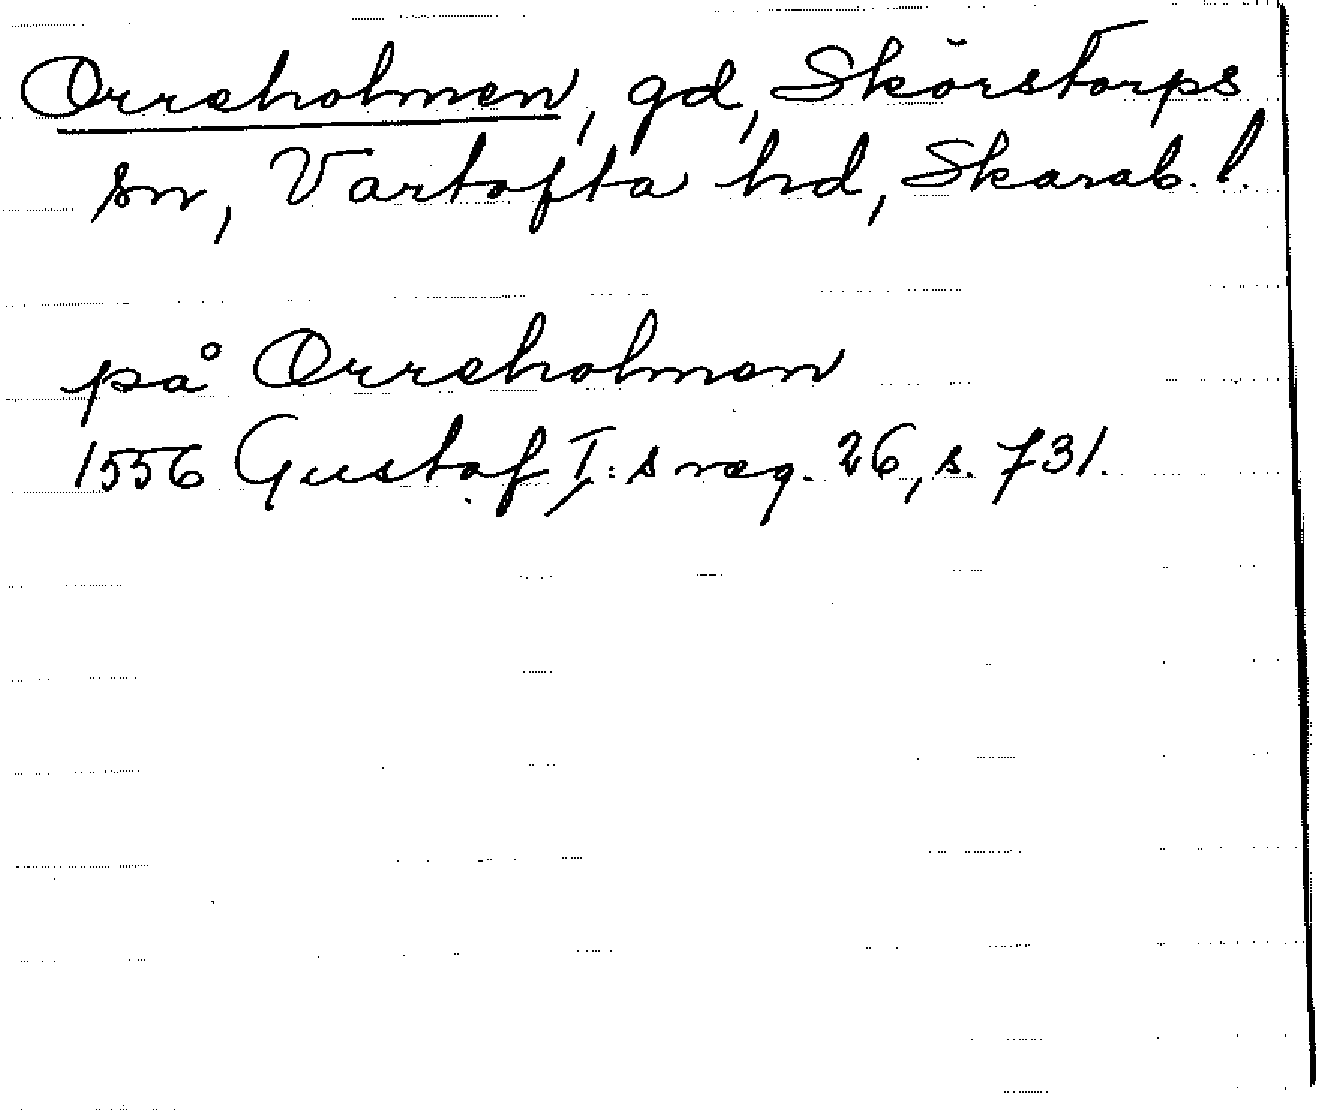 Orreholmen, gd, Skörstorps
sn, Vartofta hd, Skarab. l.
på Orreholmen
1556 Gustaf I:s reg. 26, s. 731.